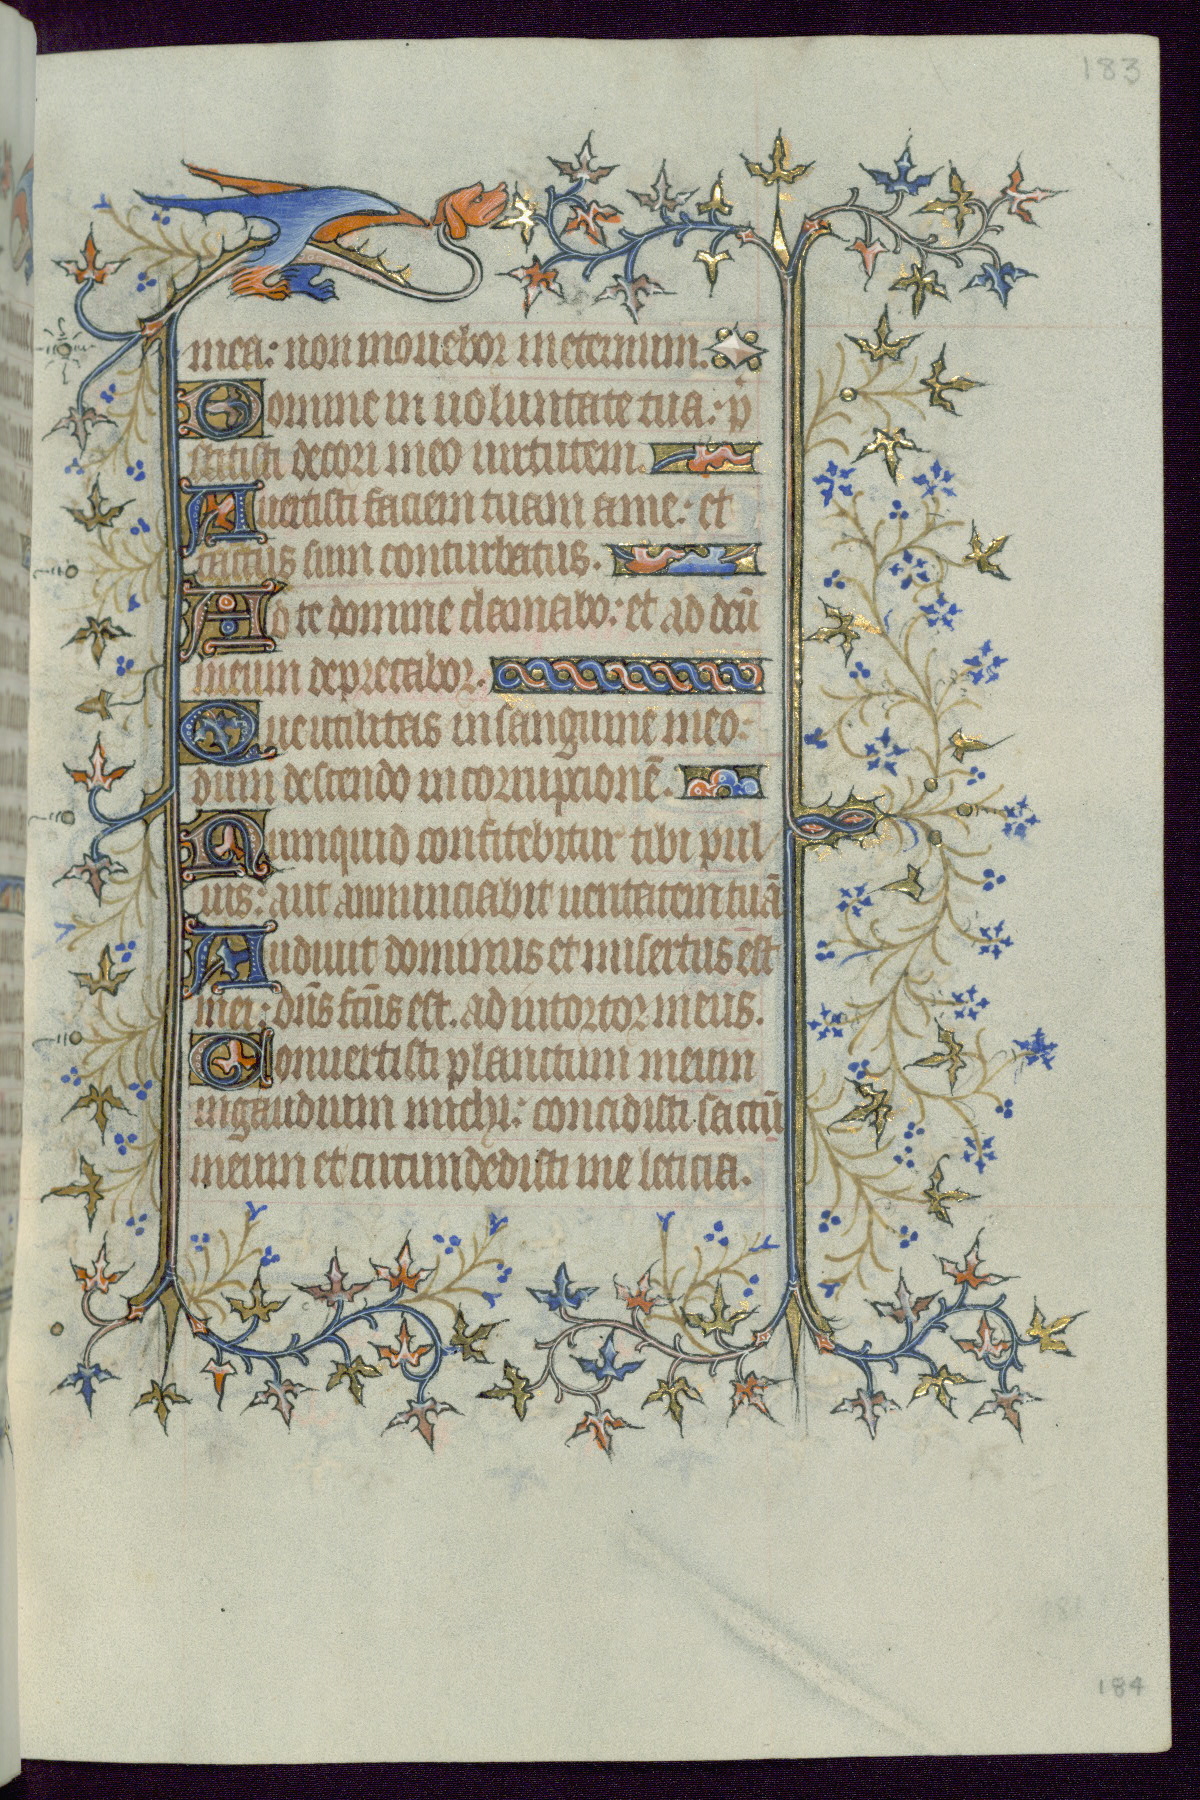 183
mea: non mouebor in eternum.
Domine in uoluntate tua: p̄
stitisti decori meo uirtutem.
Auertisti faciem tuam a me: et
factus sum conturbatus.
Ad te domine clamabo: et ad deū
meum deprecabor.
Que utilitas in sanguine meo:
dum descendo in corrupcionē.
Numquid confitebitur tibi pul
uis: aut annunciabit ueritatem tuā
Audiuit dominus et misertus est
mei: dn̄s fc̄us est. adiutor meus.
Conuertisti planctum meum
in gaudium michi: concidisti saccū
meum et circumdedisti me leticia.
184